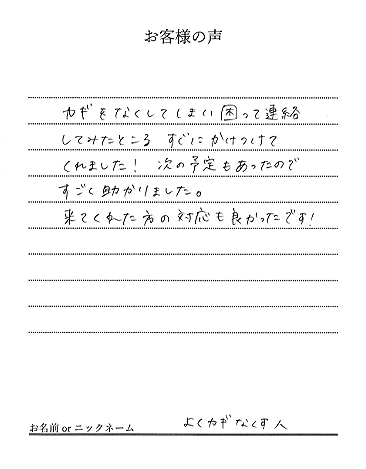 お客様の声
カギをなくしてしまい困って連絡
してみたところ すぐにかけつけて
くれました! 次の予定もあったので
すごく助かりました。
来てくれた方の対応も良かったです!
お名前 or ニックネーム よくカギなくす人